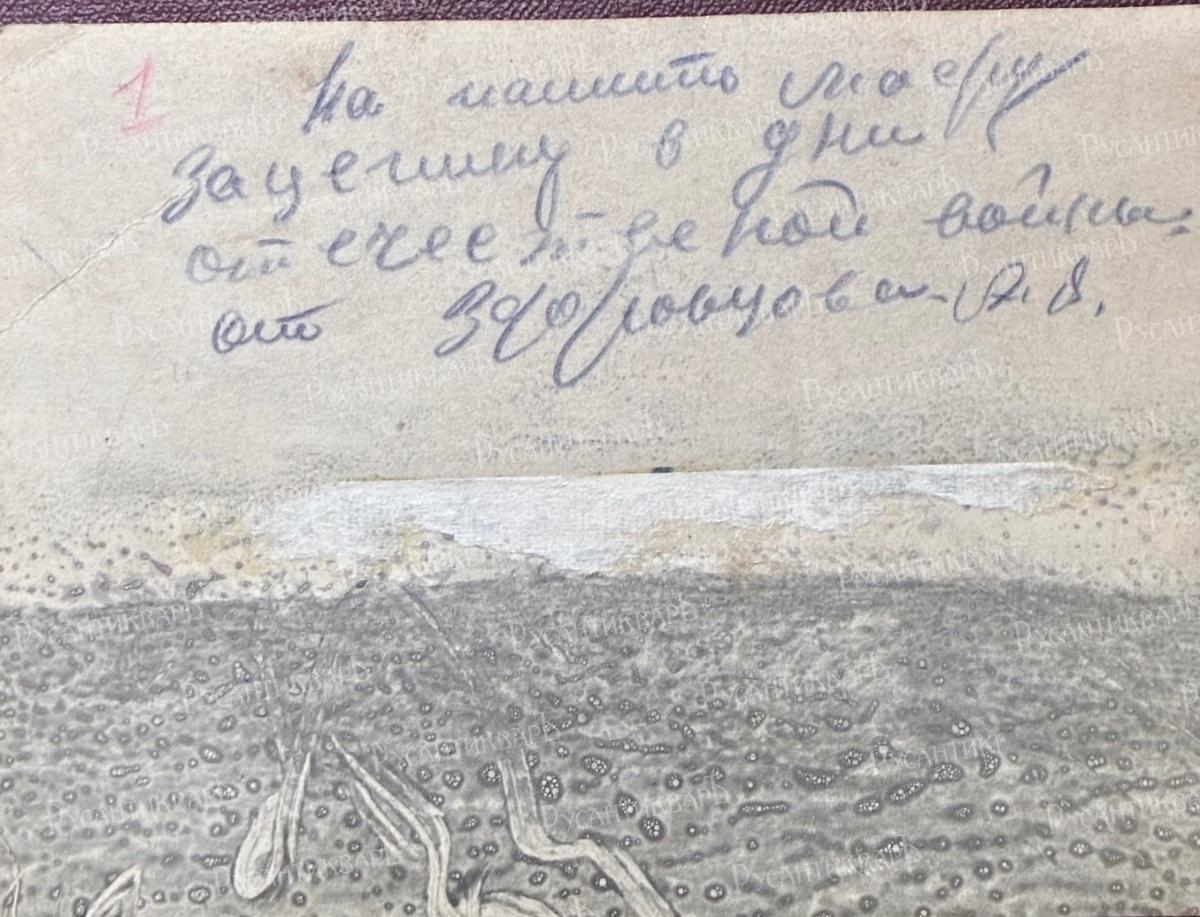 1 На память маеру
Зацепину в дни
отечественой войны.
от Здоровцова А. Д.
РУСАНТИКВАРЪ